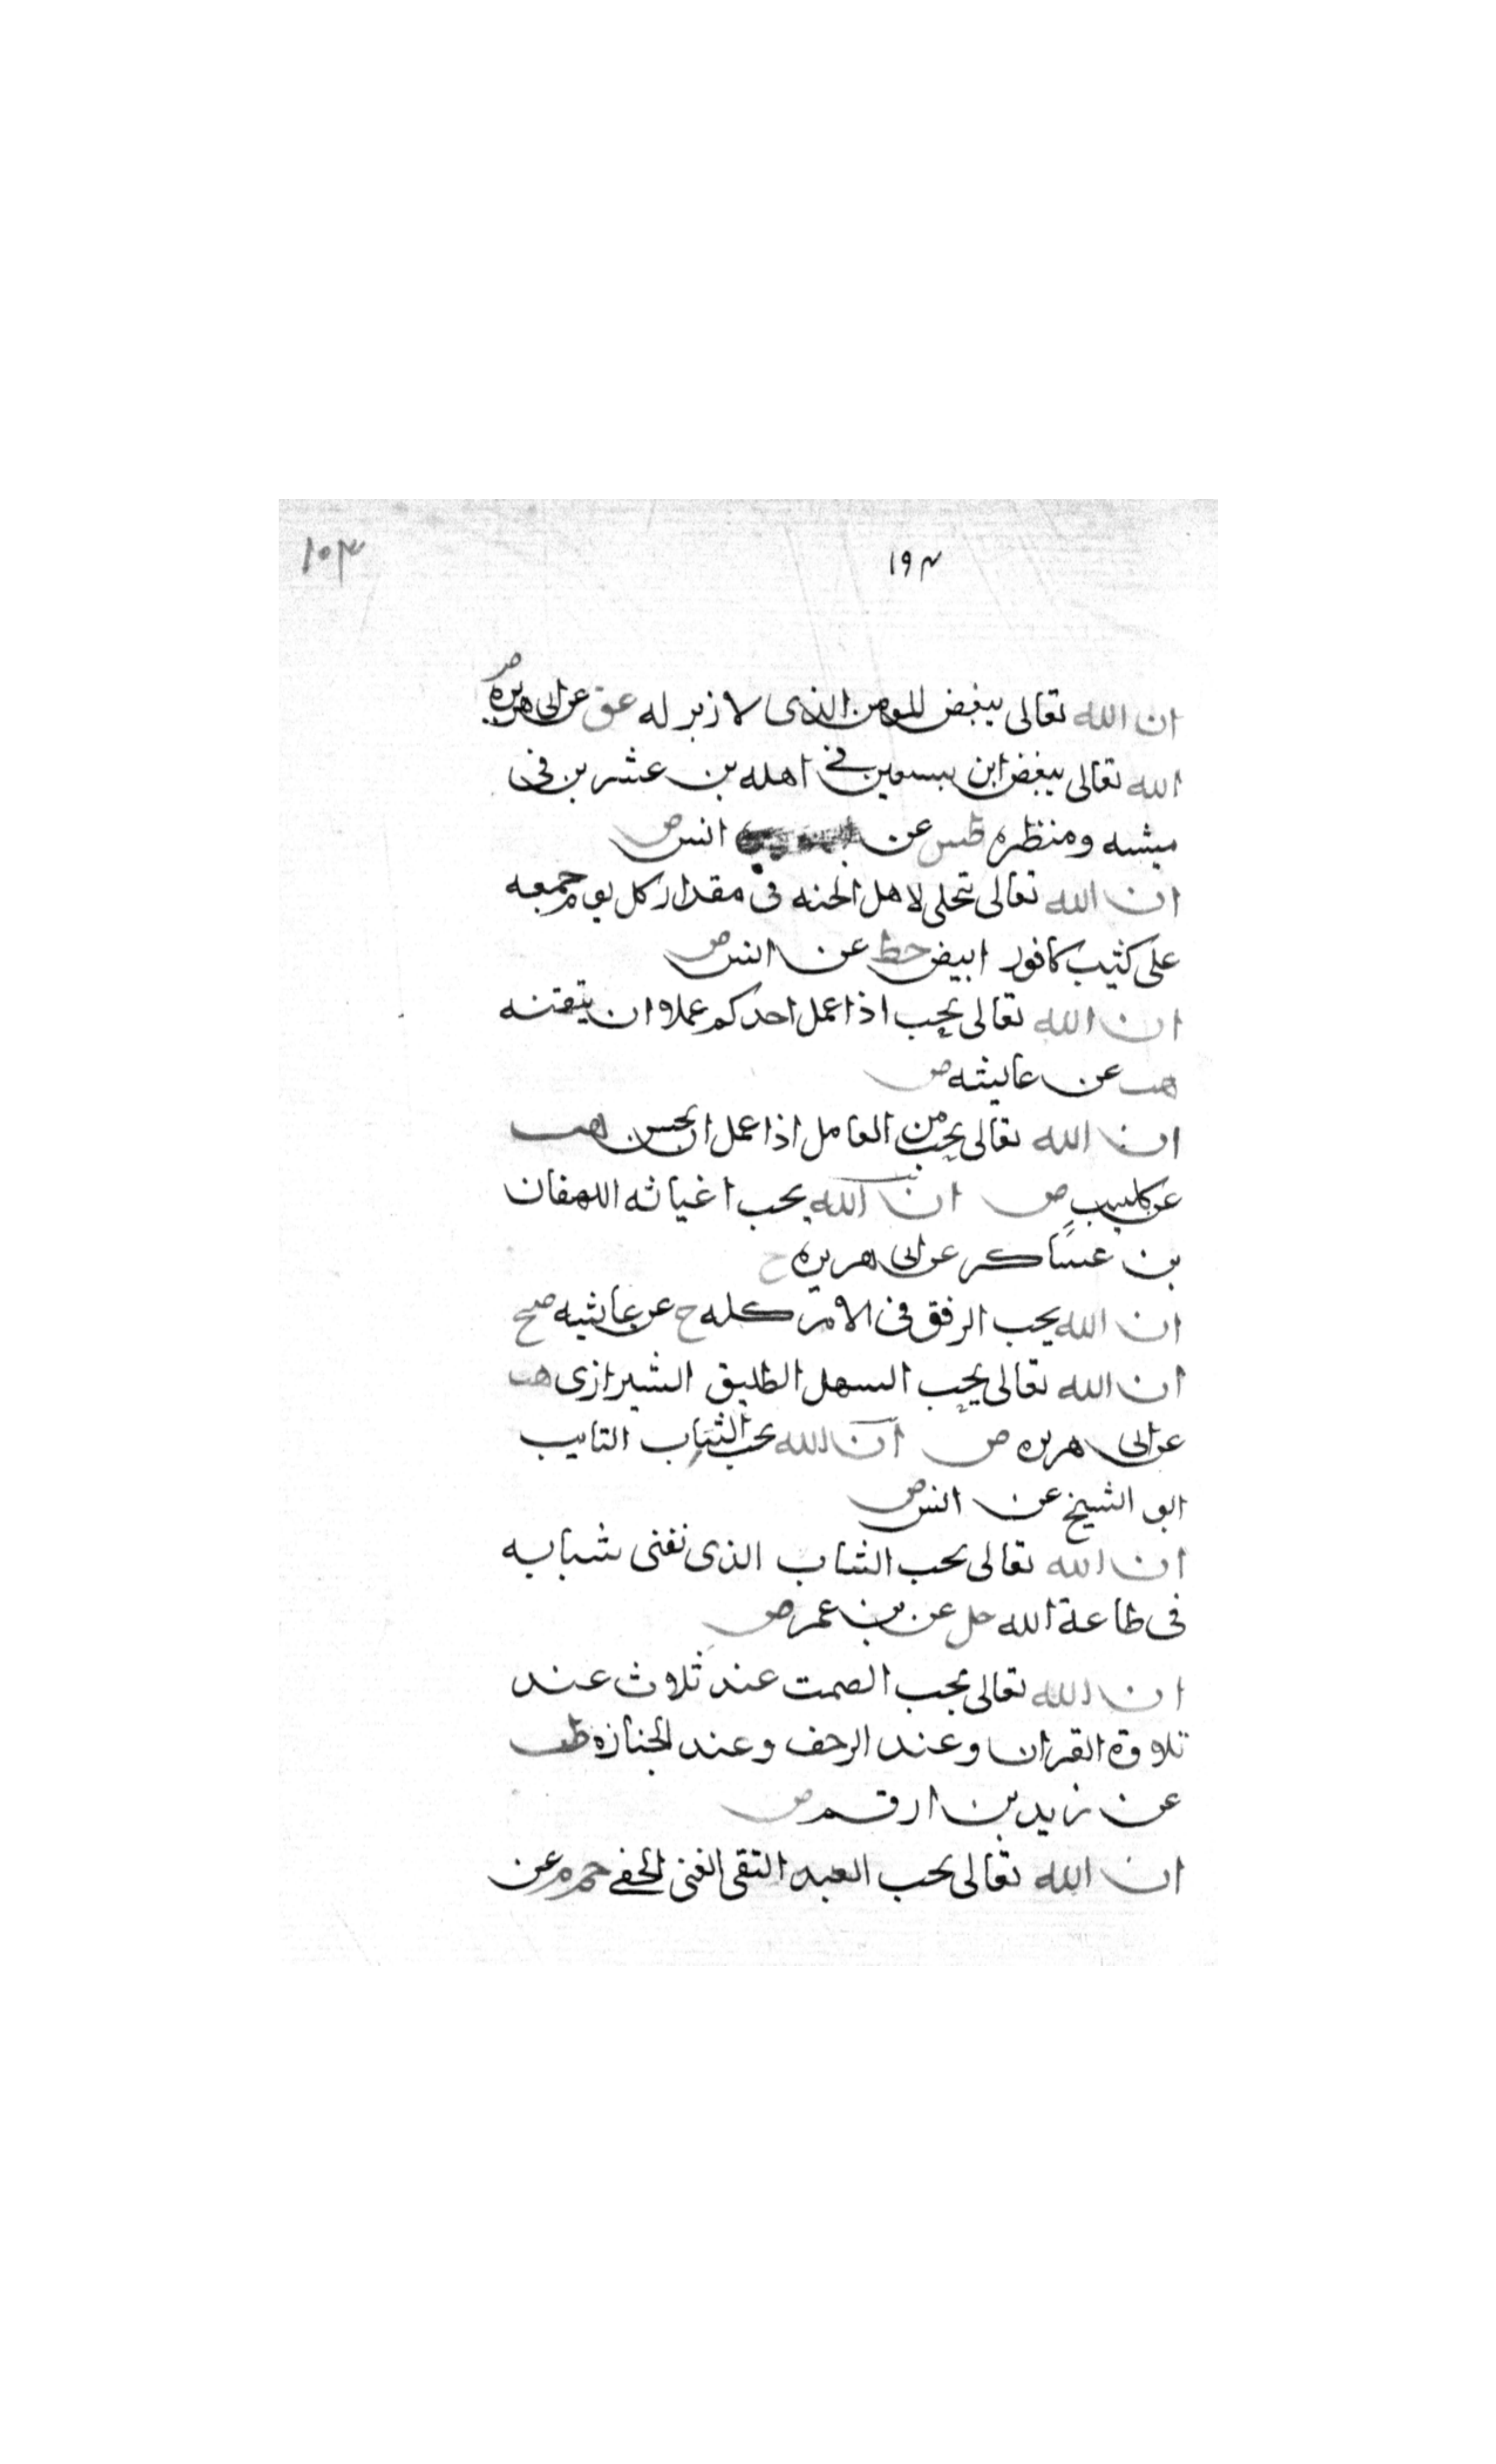 ١٩٣
١٠٣
ان الله تعالى يبغض المومن الذى لا زبر له عق عن ابى هريره ض
الله تعالى يبغض ابن سبعين فى اهله بن عشرين فى
مشيه ومنظره طس عن انس ض
ان الله تعالى يتجلى لاهل الجنه فى مقدار كل يوم جمعه
على كثيب كافور ابيض خط عن انس ض
ان الله تعالى يحب اذا عمل احدكم عملا ان يتقنه
هب عن عايشه ض
ان الله تعالى يحب من العامل اذا عمل ان يحسن هب
عن كليب ض ان الله يحب اغياثه اللهفان
بن عساكر عن ابى هريره ح
ان الله يحب الرفق فى الامر كله خ عن عايشه صح
ان الله تعالى يحب السهل الطليق الشيرازى هب
عن ابى هريره ض ان الله يحب الشاب التايب
ابو الشيخ عن انس ض
ان الله تعالى يحب الشاب الذى يفنى شبابه
فى طاعة الله حل عن بن عمر ض
ان الله تعالى يحب الصمت عند ثلاث عند
تلاوة القران وعند الزحف وعند الجنازه طب
عن زيد بن ارقم ض
ان الله تعالى يحب العبد التقى الغنى الخفى حم م عن